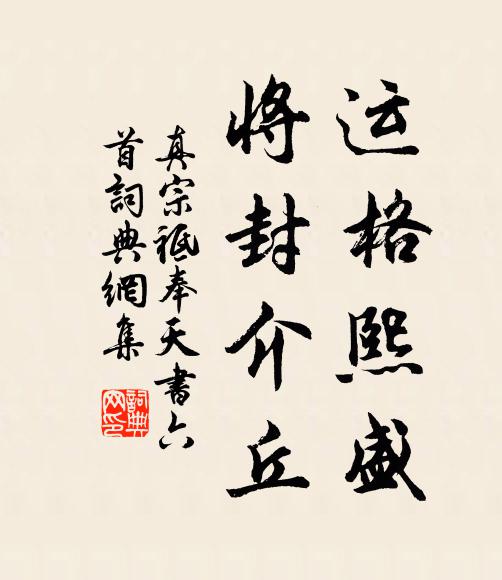 运格熙盛
将封介丘
真宗祗奉天书六
首詞典網集
詞典网印